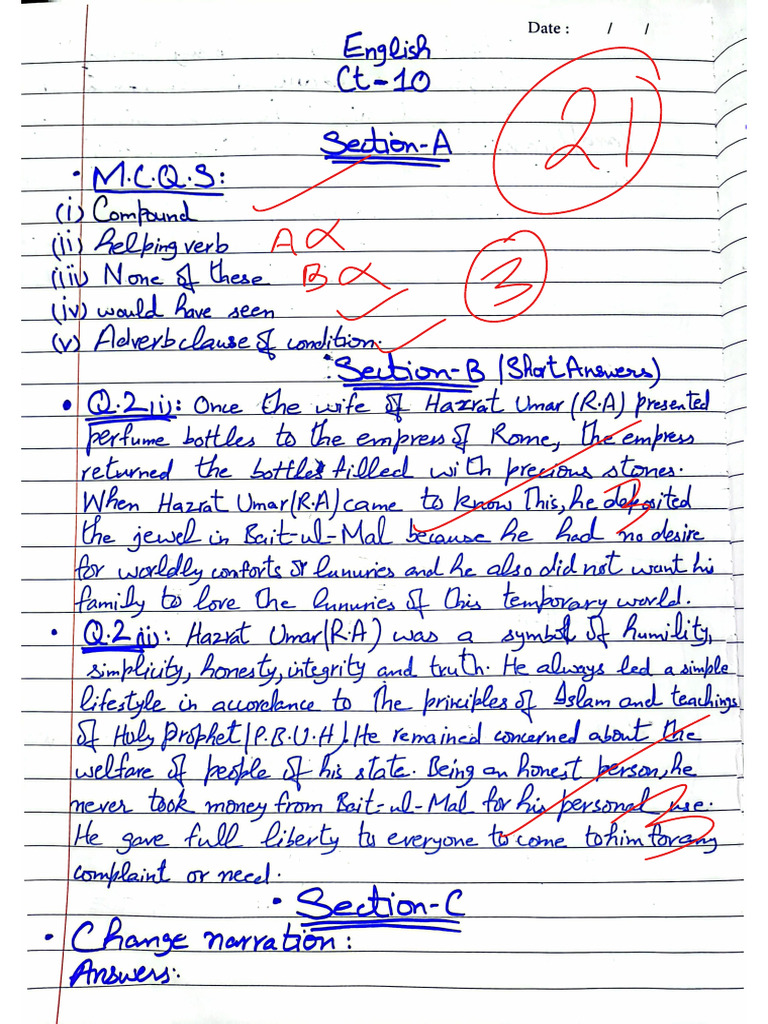 Date :      /      /
English
Ct-10
21
Section-A
• M.C.Q.S:
(i) Compound
(ii) helping verb A
(iii) None of these B
3
(iv) would have seen
(v) Adverb clause of condition.
Section-B (Short Answers)
• Q.2(i): Once the wife of Hazrat Umar (R.A) presented
perfume bottles to the empress of Rome, the empress
returned the bottles filled with precious stones.
When Hazrat Umar (R.A) came to know This, he deposited
the jewel in Bait-ul-Mal because he had no desire
for worldly conforts or lunuries and he also did not want his
family to love the lunuries of this temporary world.
• Q.2(ii): Hazrat Umar (R.A) was a symbol of humility,
simplicity, honesty, integrity and truth. He always led a simple
lifestyle in accordance to The principles of Islam and teachings
of Holy Prophet (P.B.U.H). He remained concerned about the
welfare of people of his state. Being an honest person, he
never took money from Bait-ul-Mal for his personal use.
He gave full liberty to everyone to come to him for any
complaint or need.
• Section-C
• Change narration:
Answers: